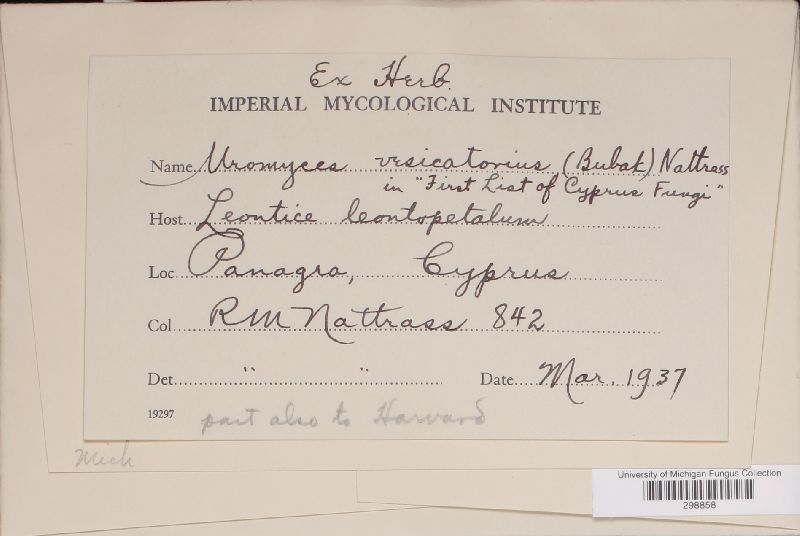 Ex Herb.
IMPERIAL MYCOLOGICAL INSTITUTE
Name Uromyces vesicatorius (Bubak) Nattrass
in "First List of Cyprus Fungi"
Host Leontice leontopetalum
Loc Panagra, Cyprus
Col RM Nattrass 842
Det " " Date Mar. 1937
19297 part also to Harvard
Mich
University of Michigan Fungus Collection
298858